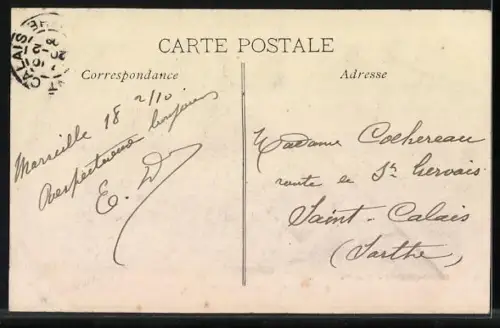 CARTE POSTALE
Correspondance
Marseille 18 2/10
Respectueux bonjours
E. D
Adresse
Madame Cochereau
route de St Gervais
Saint-Calais
(Sarthe)
CALAIS